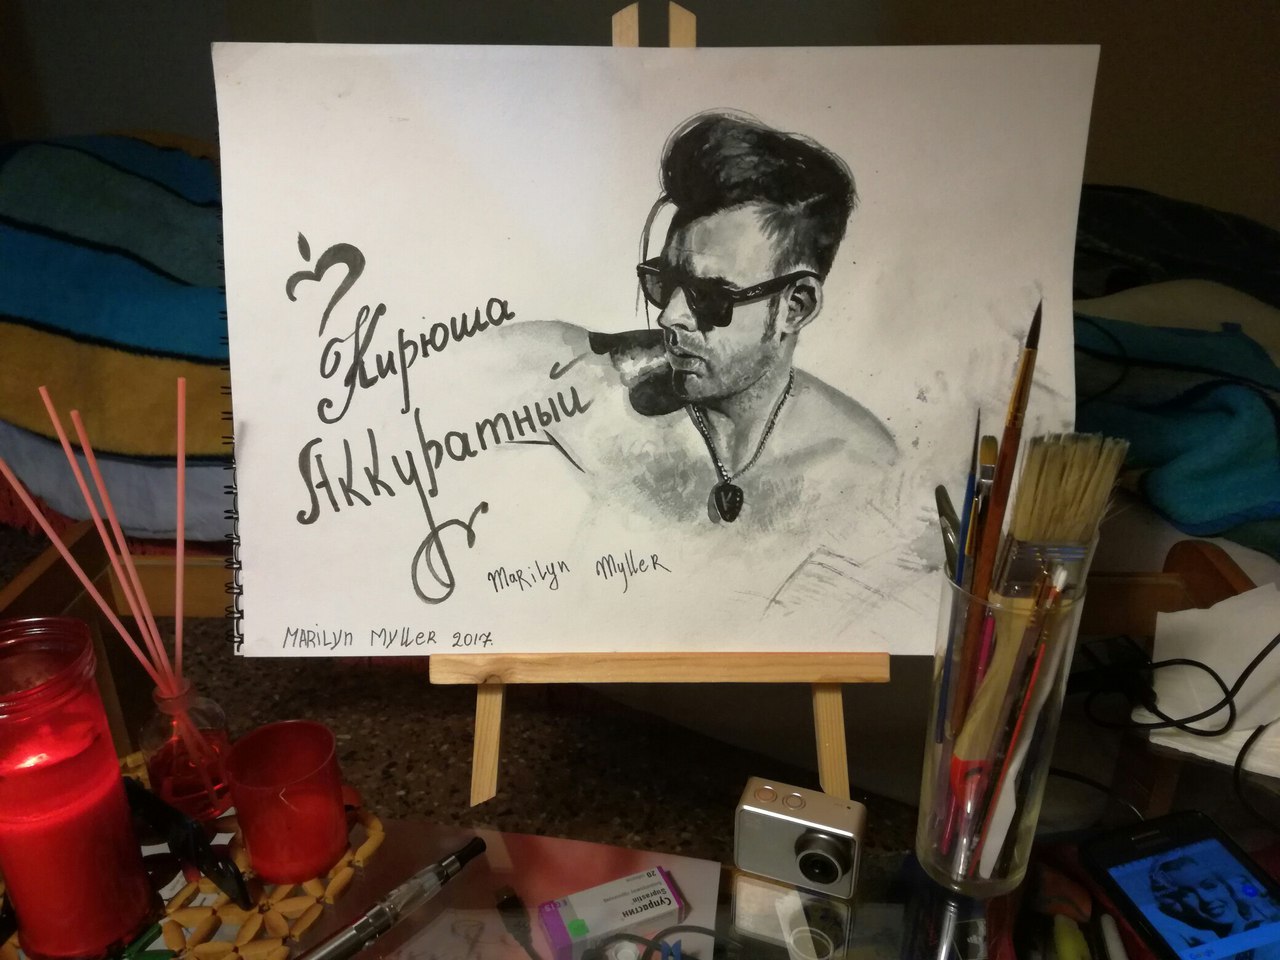 Кирюша
Аккуратный
Marilyn Myller
MARILYN MYLLER 2017.
Супрастин
Suprastin
20
EGIS